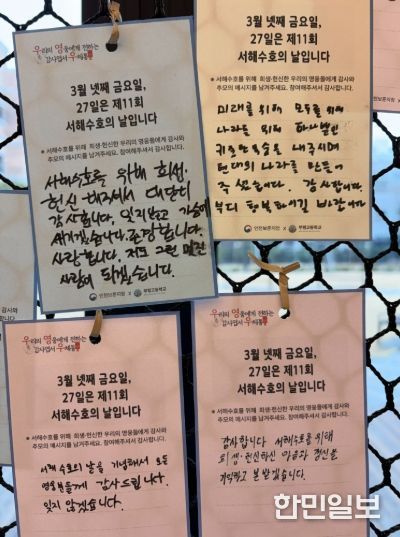 우리의 영웅에게 전하는
감사엽서 우체통
3월 넷째 금요일,
27일은 제11회
서해수호의 날입니다
※ 서해수호를 위해 희생·헌신한 우리의 영웅들에게 감사와
추모의 메시지를 남겨주세요. 참여해주셔서 감사합니다.
서해수호를 위해 희생.
헌신 해주셔서 대단히
감사합니다. 잊지않고 가슴에
새기겠습니다. 존경합니다.
사랑합니다. 저도 그런 멋진
사람이 되겠습니다.
인천보훈지청 x 부평고등학교
3월 넷째 금요일,
27일은 제11회
서해수호의 날입니다
※ 서해수호를 위해 희생·헌신한 우리의 영웅들에게 감사와
추모의 메시지를 남겨주세요. 참여해주셔서 감사합니다.
미래를 위해 모두를 위해
나라를 위해 하나뿐인
귀중한 목숨을 내주시며
현대의 나라를 만들어
주셨습니다. 감사합니다.
부디 행복하시길 바랍니다
인천보훈지청 x 부평고등학교
우리의 영웅에게 전하는
감사엽서 우체통
3월 넷째 금요일,
27일은 제11회
서해수호의 날입니다
※ 서해수호를 위해 희생·헌신한 우리의 영웅들에게 감사와
추모의 메시지를 남겨주세요. 참여해주셔서 감사합니다.
서해 수호의 날을 기념해서 모든
영웅분들께 감사드립니다.
잊지 않겠습니다.
우리의 영웅에게 전하는
감사엽서 우체통
3월 넷째 금요일,
27일은 제11회
서해수호의 날입니다
※ 서해수호를 위해 희생·헌신한 우리의 영웅들에게 감사와
추모의 메시지를 남겨주세요. 참여해주셔서 감사합니다.
감사합니다 서해수호를 위해
희생·헌신하신 마음과 정신을
기억하고 본받겠습니다.
한민일보